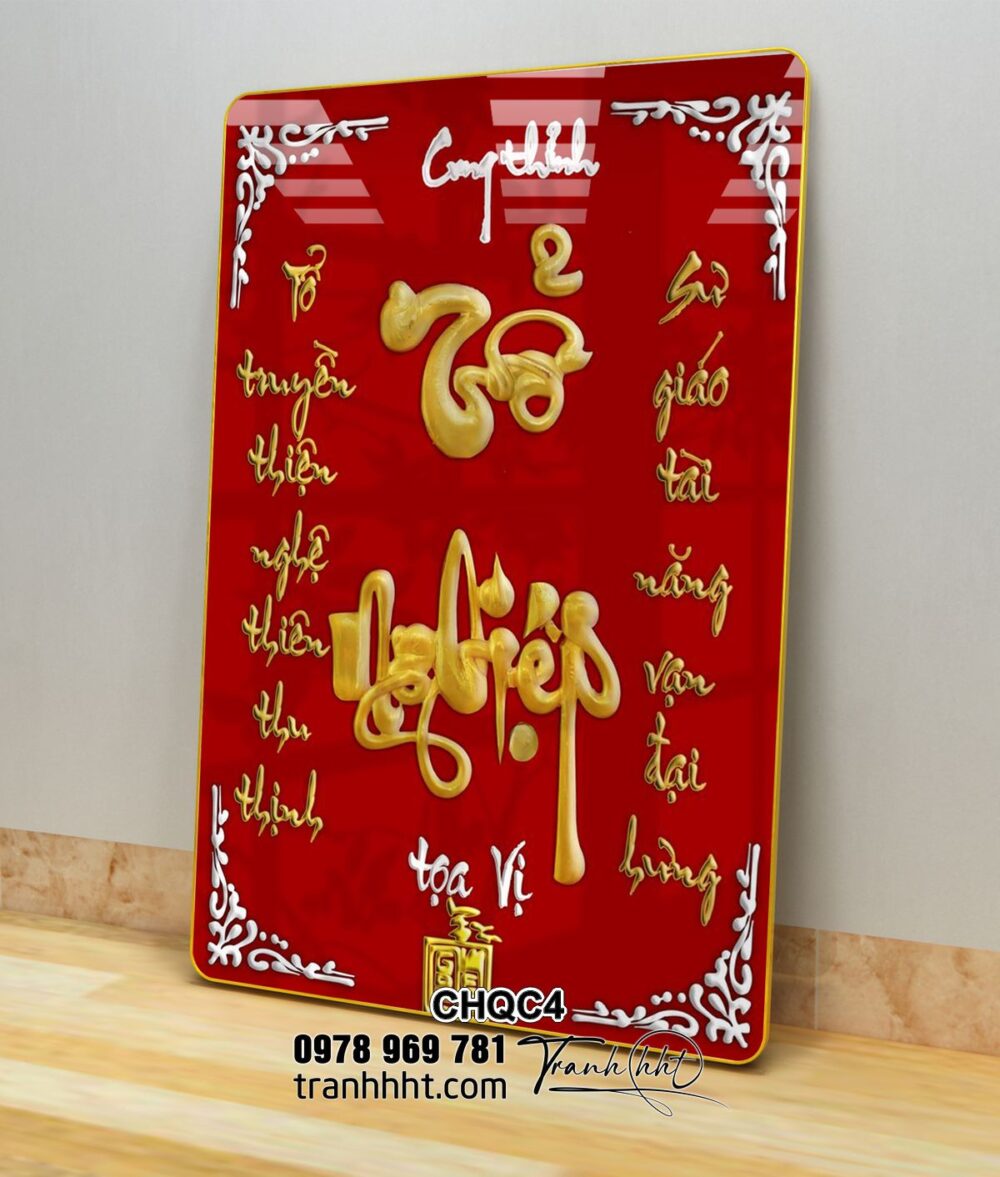 Cung thỉnh
Tổ
Nghiệp
Tổ
truyền
thiện
nghệ
thiên
thu
thịnh
Sư
giáo
tài
năng
vạn
đại
hưng
tọa Vị
CHQC4
0978 969 781
tranhhht.com
Tranh hht